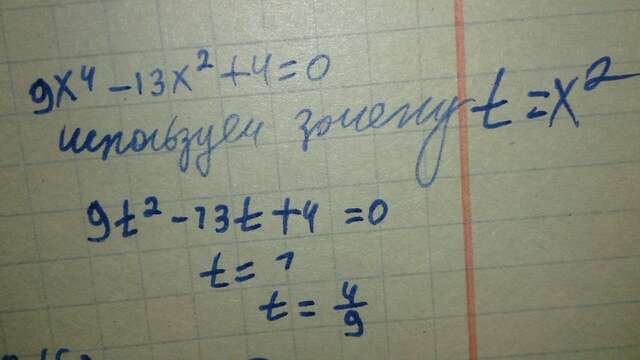 9x⁴ - 13x² + 4 = 0
используем замену t = x²
9t² - 13t + 4 = 0
t = 1
t = 4/9